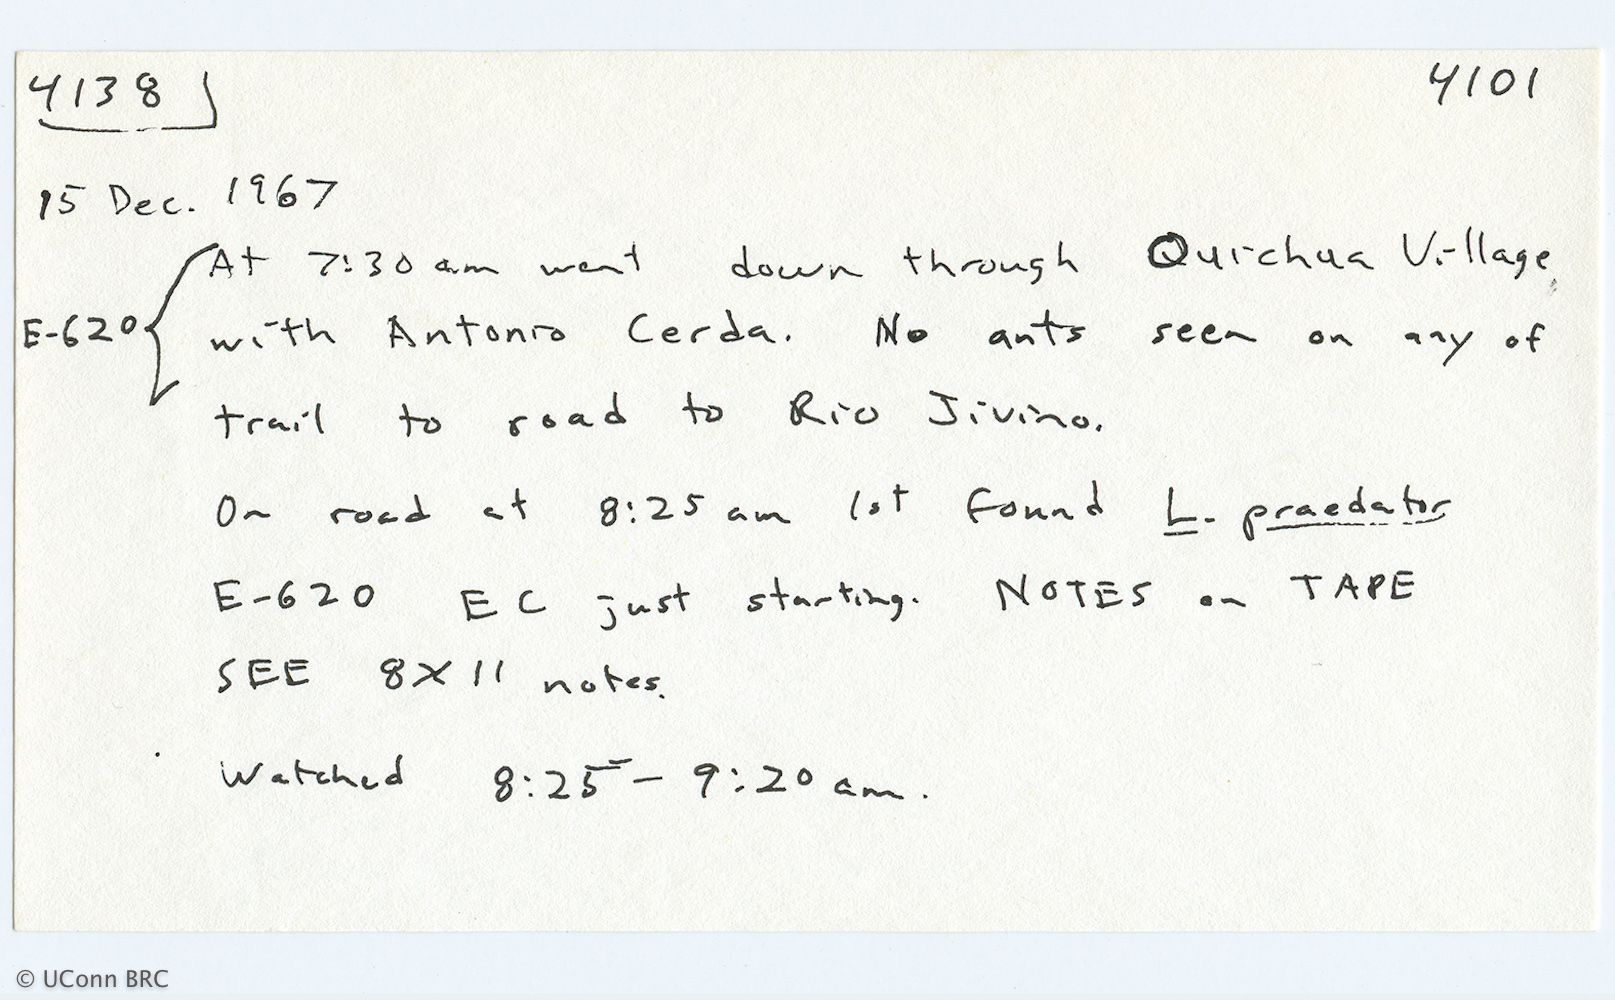 4138 4101
15 Dec. 1967
At 7:30 am went down through Quichua Village
E-620 with Antonio Cerda. No ants seen on any of
trail to road to Rio Jivino.
On road at 8:25 am 1st found L. praedator
E-620 EC just starting. NOTES on TAPE
SEE 8X11 notes.
Watched 8:25 - 9:20 am.
© UConn BRC